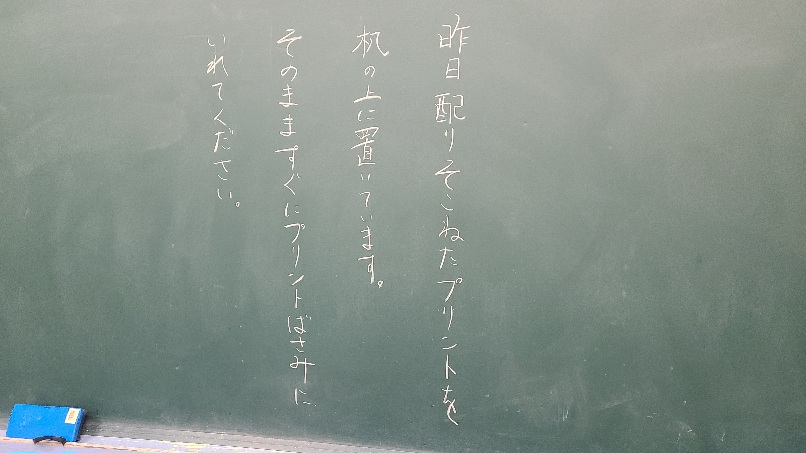 昨日配りそこねたプリントを
机の上に置いています。
そのまますぐにプリントばさみに
いれてください。